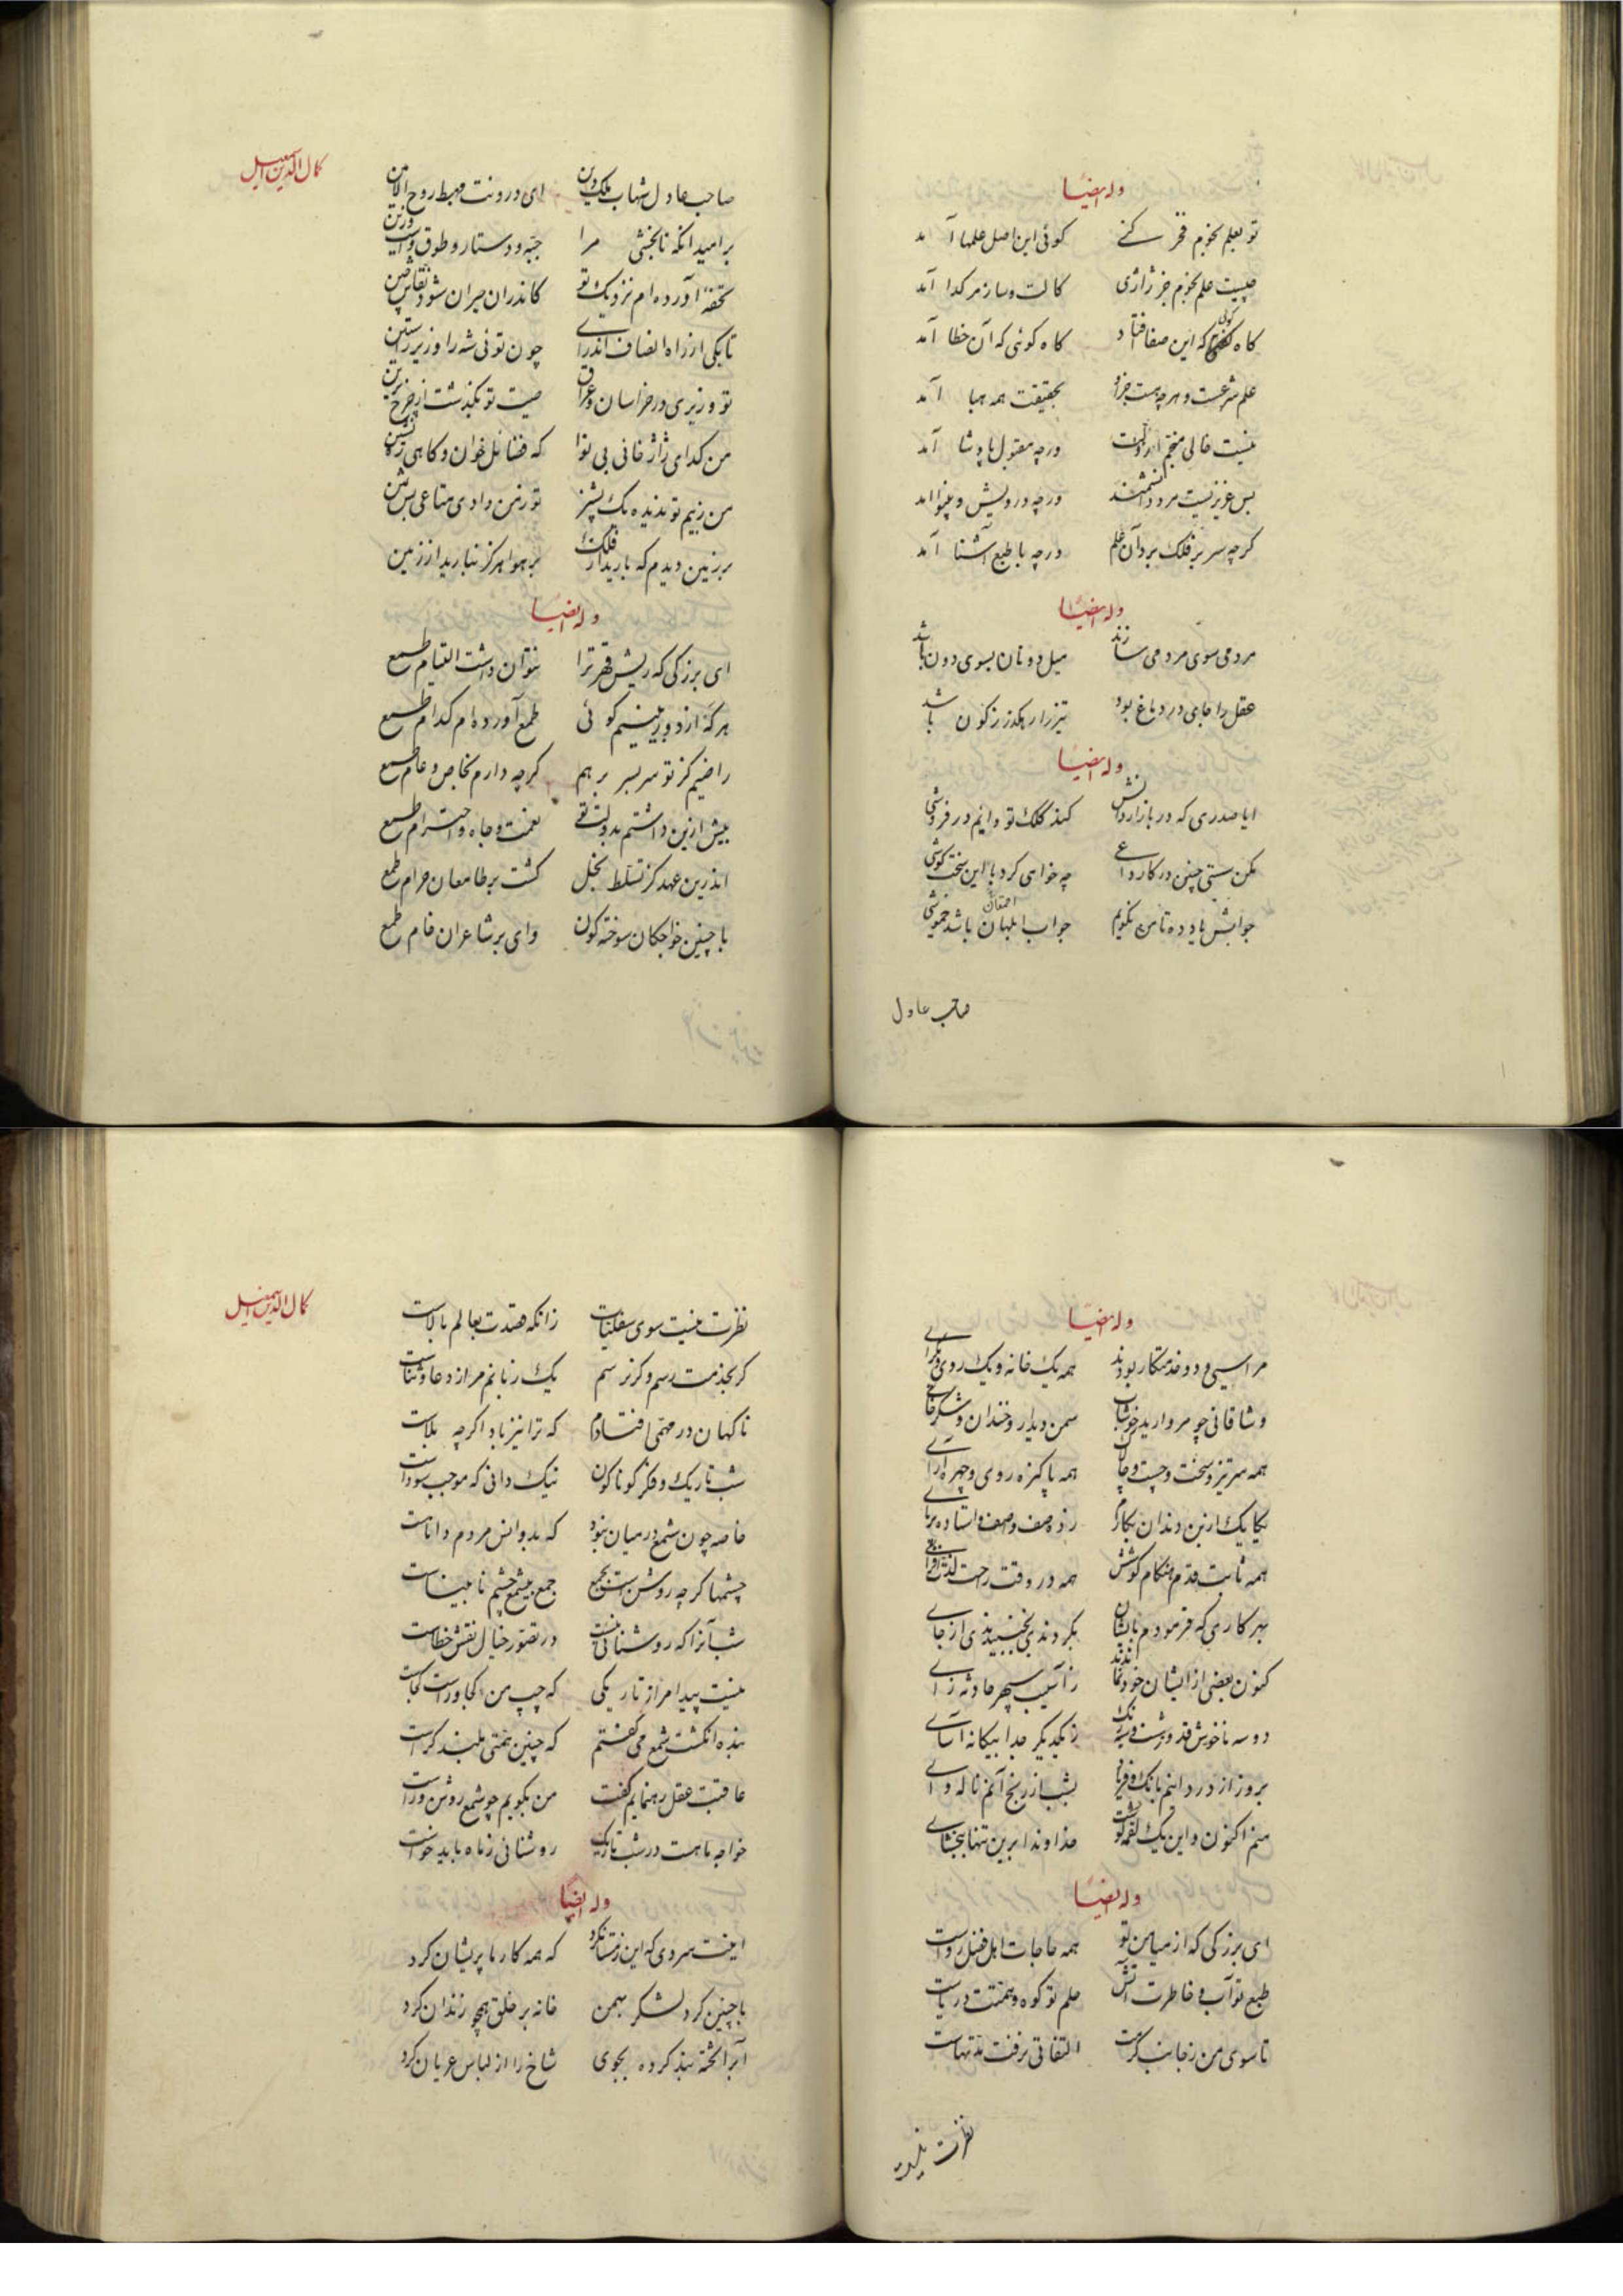 وله ایضا
تو بعلم نجوم فخر کنے کوئی این اصل علمها آمد
چیست علم نجوم جز ژاژی کالت و ساز مر کدا آمد
کاه کوئی که این صفا فتاد کاه کوئی که آن خطا آمد
علم شرعست و هرچه هست جزو بحقیقت همه هبا آمد
نیست خالی منجم از ورچه مقبول پادشا آمد
بس عزیز نیست مرد دانشمند ورچه درویش و بینوا آمد
کرچه سر بر فلک برد آن علم ورچه با طبع آشنا آمد
وله ایضا
مردمی سوی مردمی سازند میل دونان بسوی دون باشد
عقل را جای در دماغ بود تیز را رهکذر ز کون باشد
وله ایضا
ایا صدری که در بازار دانش کند کلک تو دایم در فروشی
مکن سستی چنین در کار داعی چه خواهی کرد با این سخت کوشی
جوابش یاد ده تا من نکویم جواب ابلهان باشد خموشی
احمقان
صاحب عادل
کمال الدین اسمعیل
صاحب عادل شهاب ملک و دین ای درونت مهبط روح الامین
بر امید انکه تا بخشی مرا جبه و دستار و طوق و اسب و زین
تحفه آورده ام نزدیک تو کاندران حیران شود نقاش چین
تا یکی از راه انصاف اندرا چون توئی شه را وزیر راستین
تو وزیری در خراسان و عراق صیت تو بکذشت از چرخ برین
من کدای ژاژ خائی بی نوا که فضائل خوان و کاهی ره نشین
من ز سیم تو ندیده یک پشیز تو ز من دادی متاعی بس ثمین
بر زمین دیدم که بارید از فلک بر هوا هرکز نبارید از زمین
وله ایضا
ای بزرکی که ریش قهر ترا نتوان داشت التیام طمع
هرکه از دور بینم کوئی طمع آورده ام کدام طمع
راضیم کز تو سر بسر برهم کرچه دارم بخاص و عام طمع
پیش ازین داشتم بدولت تو نعمت و جاه و احترام طمع
اندرین عهد کز تسلط بخل کشت بر طامعان حرام طمع
با چنین خواجکان سوخته کون وای بر شاعران خام طمع
وله ایضا
مرا سی و دو خدمتکار بودند همه یک خانه و یک روی و یکرای
وشاقانی چو مروارید خوشاب سمن دیدار و خندان و شکرخای
همه سرتیز و سخت و چست و چالاک همه پاکیزه روی و چهره آرای
یکایک ازبن دندان بکارم زده صف و صف و استاده برپای
همه ثابت قدم هنکام کوشش همه در وقت راحت لذت افزای
بهر کاری که فرمودم بایشان بکردندی نجنبیدندی از جای
کنون بعضی از ایشان خود نماندند ز آسیب سپهر حادثه زای
دو سه ناخوش قد و زشت و سیه رنک ز یکدیکر جدا بیکانه آسای
بروز از درد اینم بانک و فریاد بشب از رنج آنم ناله و وای
منم اکنون و این یک لقمه کوشت خداوندا برین تنها ببخشای
وله ایضا
ای بزرکی که از میامن تو همه حاجات اهل فضل رواست
طبع تو آب و خاطرت آتش حلم تو کوه و همتت دریاست
تا سوی من ز جانب کرمت التفاتی نرفت مدتهاست
نظرت نیست
کمال الدین اسمعیل
نظرت نیست سوی سفلیات زانکه قصدت بعالم بالاست
کر بخدمت رسم و کر نرسم یک زبانم مر از دعا و ثناست
ناکهان در مهمی افتادم که ترا نیز باد اکرچه بلاست
شب تاریک و فکر کوناکون نیک دانی که موجب سوداست
خاصه چون شمع در میان نبود که بدو انس مردم داناست
چشمها کرچه روشن است بجمع جمع بی شمع چشم نابیناست
شب آنرا که روشنائی نیست در تصور خیال نقش خطاست
نیست پیدا مر از تاریکی که چپ من کجا و راست کجاست
بنده انکشت شمع می کفتم که چنین همتی بلند کراست
عاقبت عقل رهنمایم کفت من بکویم چو شمع روشن و راست
خواجه ماهست در شب تاریک روشنائی ز ماه باید خواست
وله ایضا
اینت سردی که این زمستان کرد که همه کارها پریشان کرد
با چنین کرد لشکر بهمن خانه بر خلق همچو زندان کرد
آب را تخته بند کرده بجوی شاخ را از لباس عریان کرد